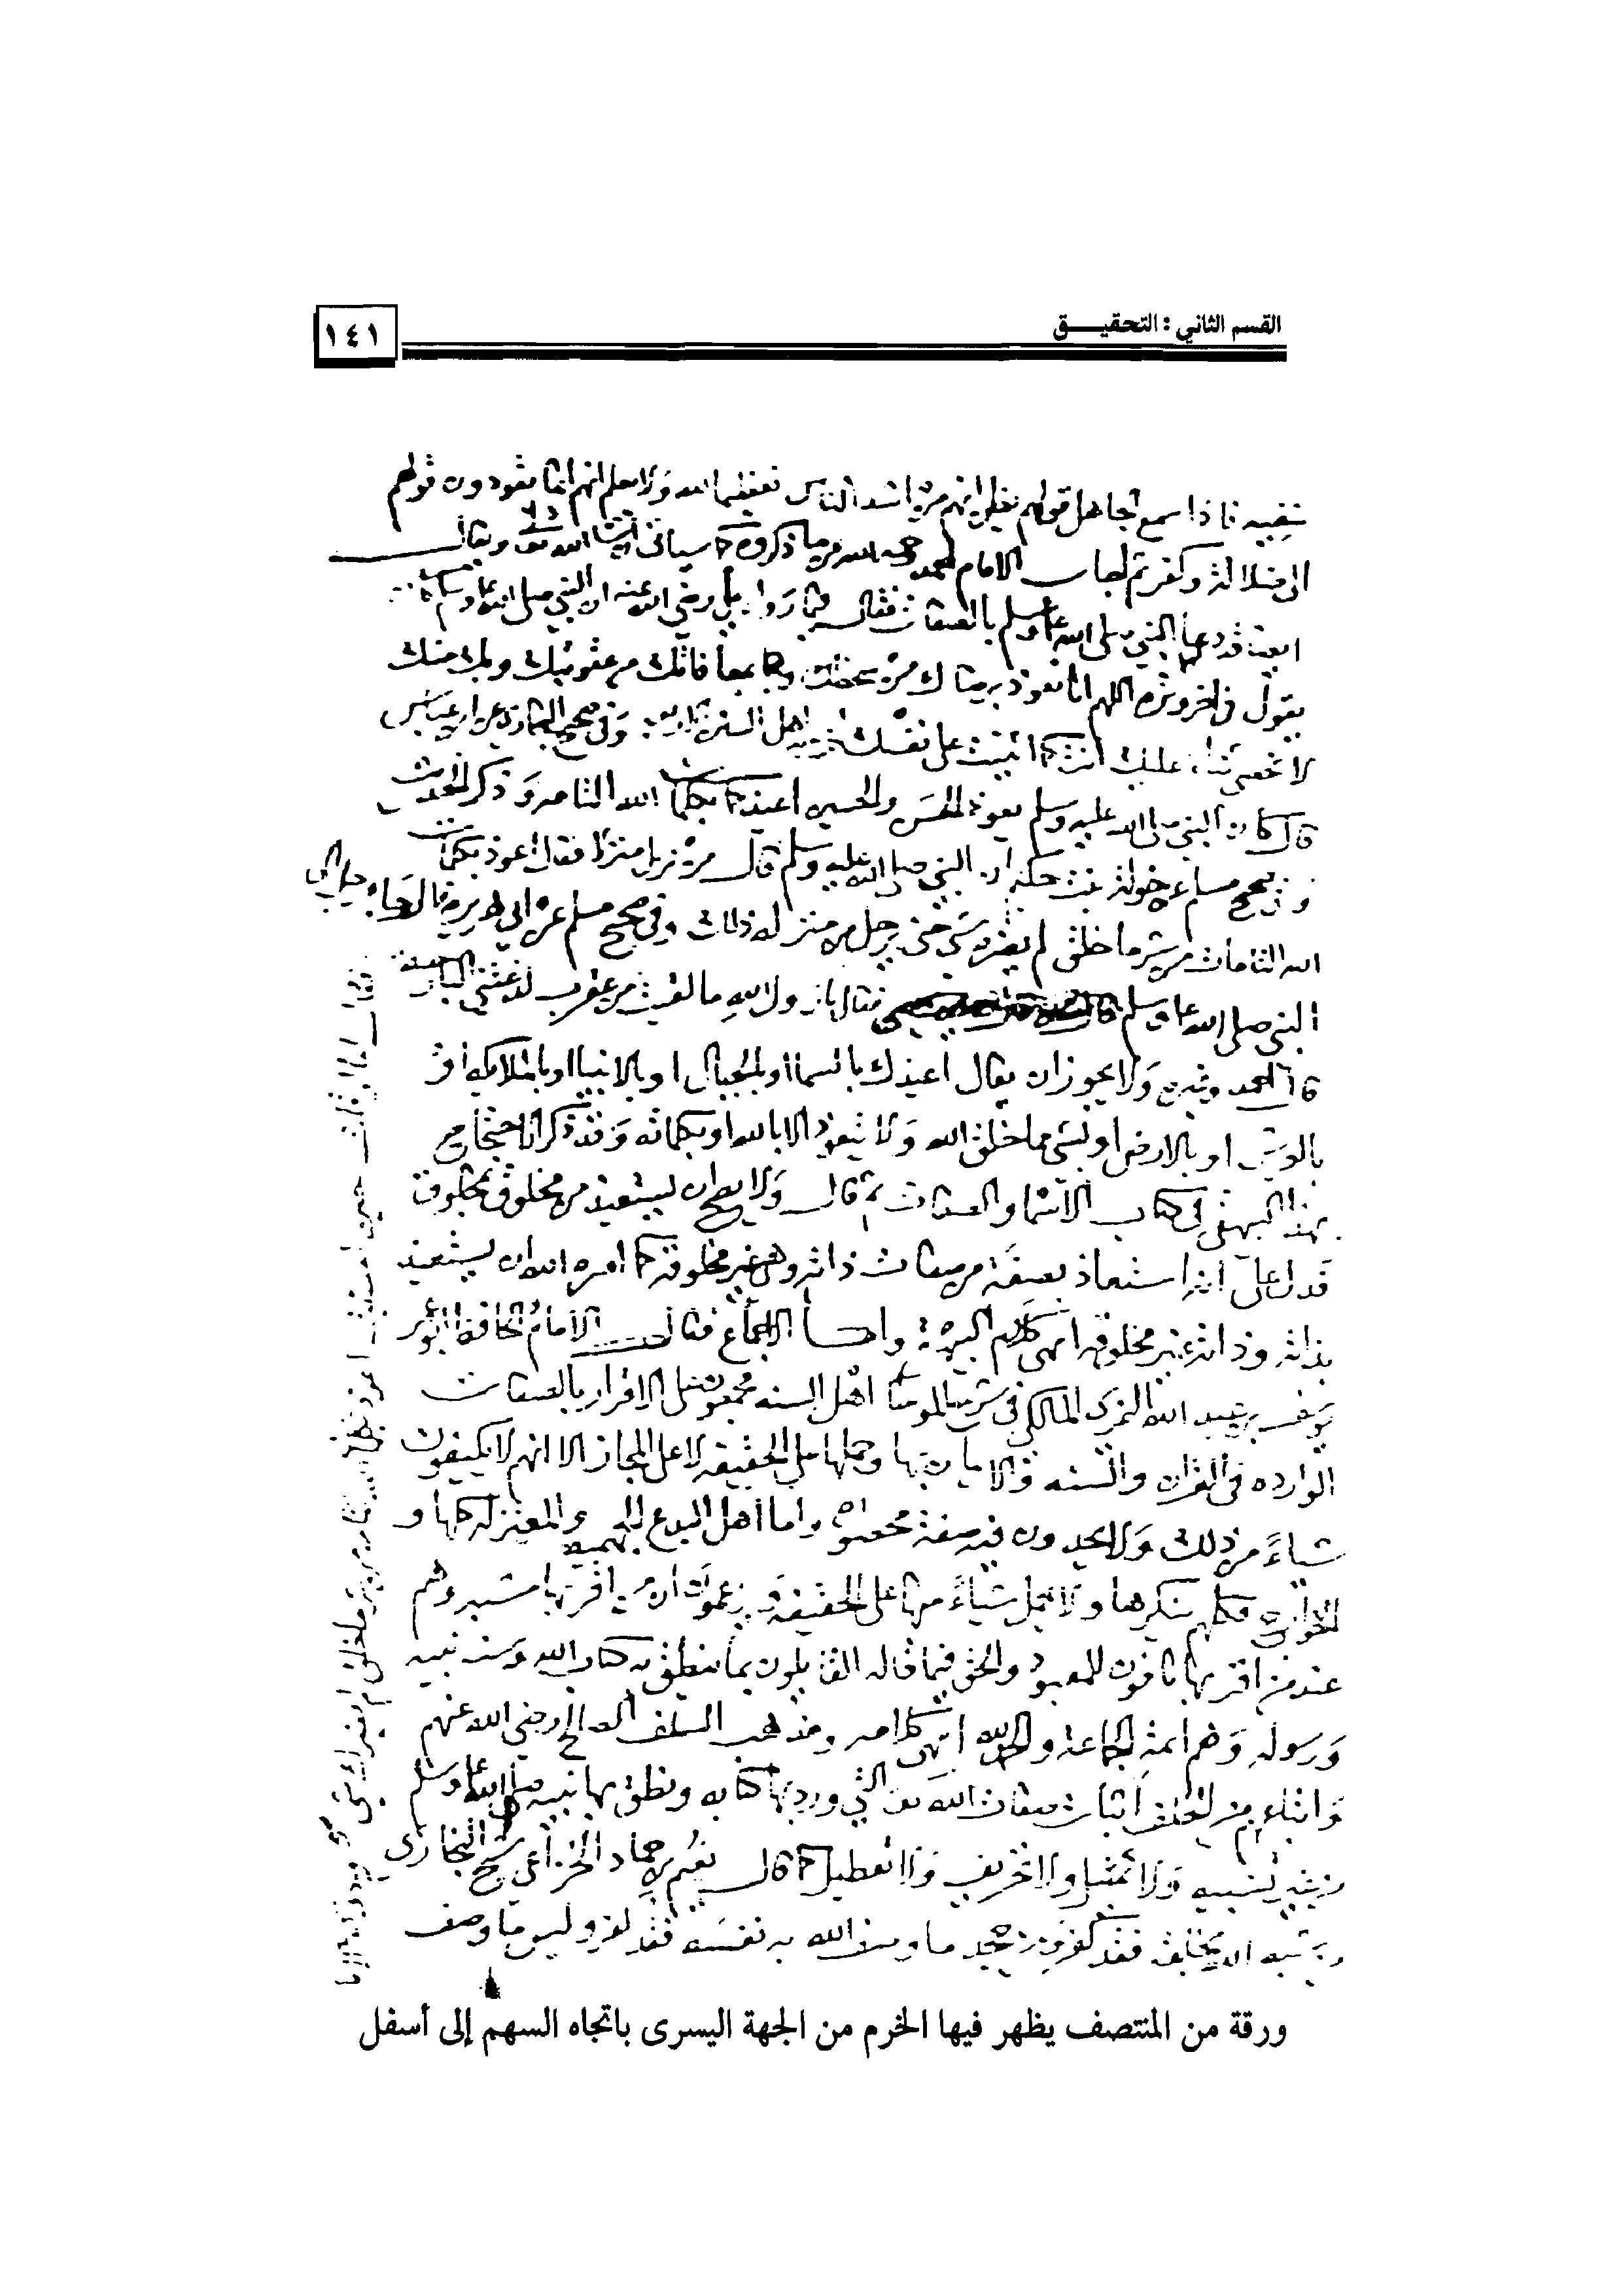 القسم الثاني : التحقيـــق
١٤١
فاذا سمع الجاهل قولهم يظن انهم من اشد الناس تعظيما لله ولا يعلم انهم انما يقودون قولهم
الى ضلالة وكفر ثم اجاب الامام احمد رحمه الله عن ما ذكروه كما سياتي ان شاء الله
النبي صلى الله عليه وسلم بالصفات فقال فيما رواه علي رضي الله عنه ان النبي صلى الله عليه وسلم كان
يقول في اخر وتره اللهم انا نعوذ برضاك من سخطك وبمعافاتك من عقوبتك وبك منك
لا نحصي ثناء عليك انت كما اثنيت على نفسك اهل السنن وفي صحيح البخاري عن ابن عباس
قال كان النبي صلى الله عليه وسلم يعوذ الحسن والحسين اعيذكما بكلمات الله التامه وذكر الحديث
وفي صحيح مسلم عن خولة بنت حكيم ان النبي صلى الله عليه وسلم قال من نزل منزلا فقال اعوذ بكلمات
الله التامات من شر ما خلق لم يضره شي حتى يرحل من منزله ذلك وفي صحيح مسلم عن ابي هريره قال جا رجل الى
النبي صلى الله عليه وسلم فقال يا رسول الله ما لقيت من عقرب لدغتني البارحة
قال احمد وغيره ولا يجوز ان يقال اعيذك بالسما او بالجبال او بالانبيا او بالملايكه او
بالعرش او بالارض او بشي مما خلق الله ولا نتعوذ الا بالله او بكلماته وقد ذكر الاحتجاج
بهذا البيهقي في كتاب الاسما والصفات ثم قال ولا يصح ان يستعيذ من مخلوق بمخلوق
فدل على انه استعاذ بصفة من صفات ذاته وهي غير مخلوقة كما امره الله ان يستعيذ
بذاته وذاته غير مخلوقه انتهى كلام البيهقي واما الاجماع فقال الامام الحافظ ابو عمر
يوسف بن عبد الله النمري المالكي في شرح الموطا اهل السنه مجمعون على الاقرار بالصفات
الوارده في القران والسنه والايمان بها وحملها على الحقيقه لا على المجاز الا انهم لا يكيفون
شياء من ذلك ولا يحدون فيه صفة محصوره واما اهل البدع الجهميه والمعتزله كلها و
الخوارج فكلهم ينكرها ولا يحمل شياء منها على الحقيقة ويزعمون ان من اقر بها مشبه وهم
عند من اقر بها نافون للمعبود والحق فيما قاله القايلون بما ينطق به كتاب الله وسنه نبيه
ورسوله وهم ائمة الجماعة والحمد لله انتهى كلامه ومذهب السلف الصالح رضي الله عنهم
واتباعهم من الخلف اثبات صفات الله التي ورد بها كتابه ونطق بها نبيه صلى الله عليه وسلم
من غير تشبيه ولا تمثيل ولا تحريف ولا تعطيل كما قال نعيم بن حماد الخزاعي شيخ البخاري
من شبه الله بخلقه فقد كفر ومن جحد ما وصف الله به نفسه فقد كفر وليس ما وصف
ورقة من المنتصف يظهر فيها الخرم من الجهة اليسرى باتجاه السهم إلى أسفل